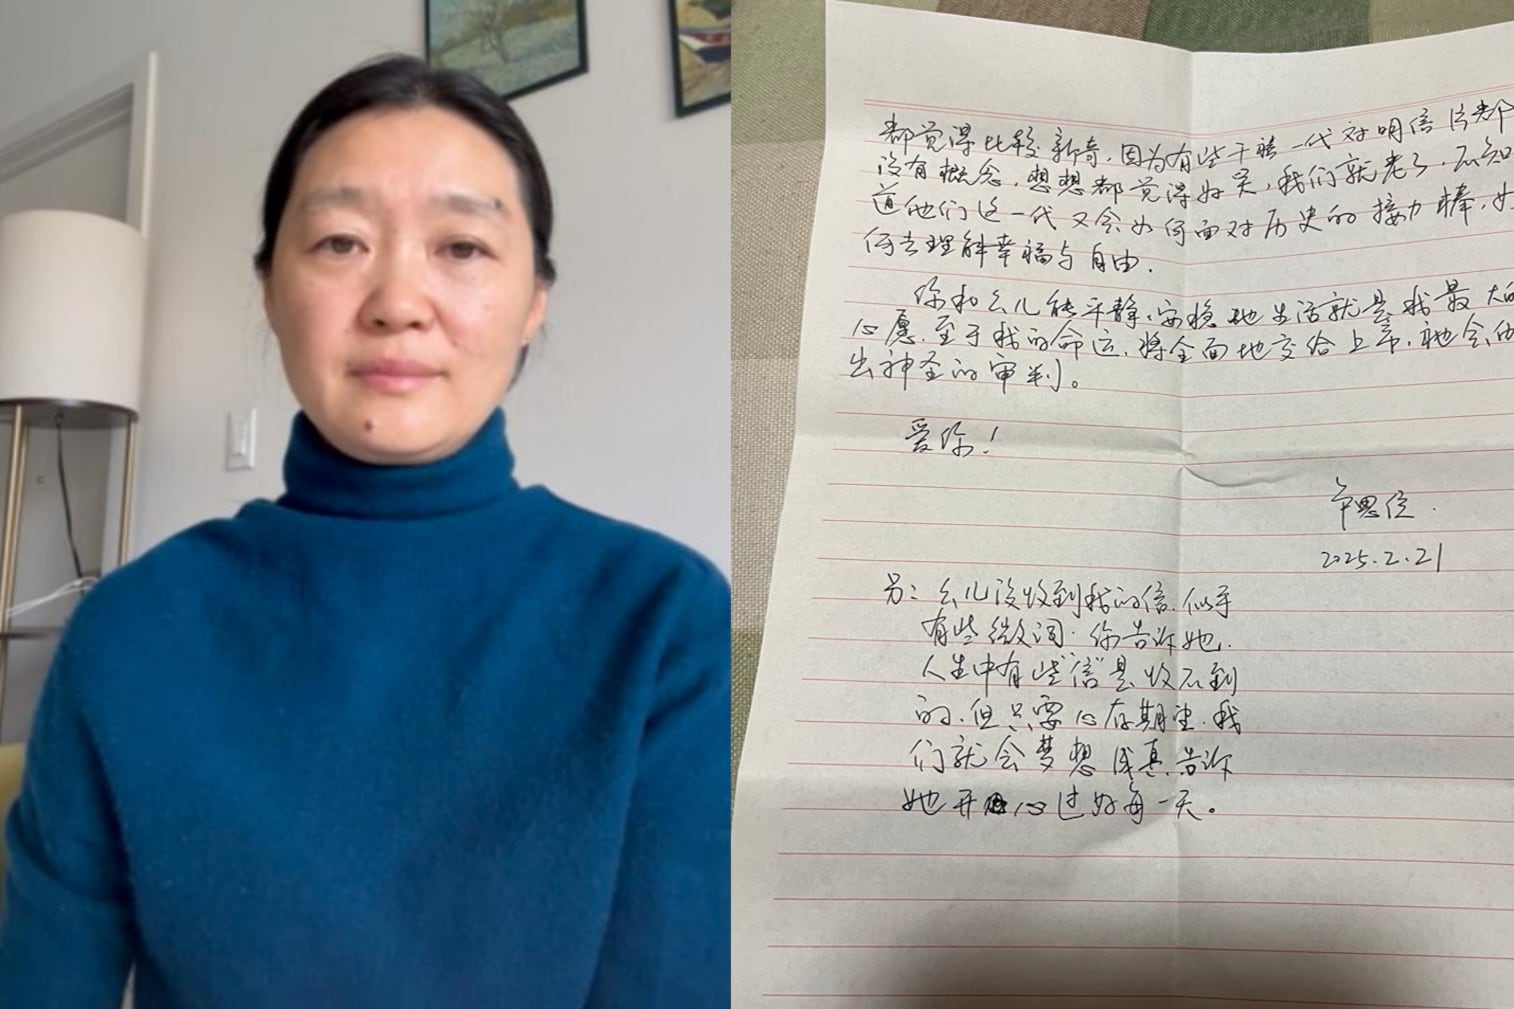 都觉得比较新奇,因为有些干警一代对明信片都
没有概念,想想都觉得好笑,我们就老了,不知
道他们这一代又会如何面对历史的接力棒,如
何去理解幸福与自由.
你和幺儿能平静、安稳地生活就是我最大的
心愿,至于我的命运,将全面地交给上帝,祂会做
出神圣的审判。
爱你!
思位.
2025.2.21
另:幺儿没收到我的信,似乎
有些微词.你告诉她.
人生中有些“信”是收不到
的,但只要心存期望,我
们就会梦想成真,告诉
她开心过好每一天。